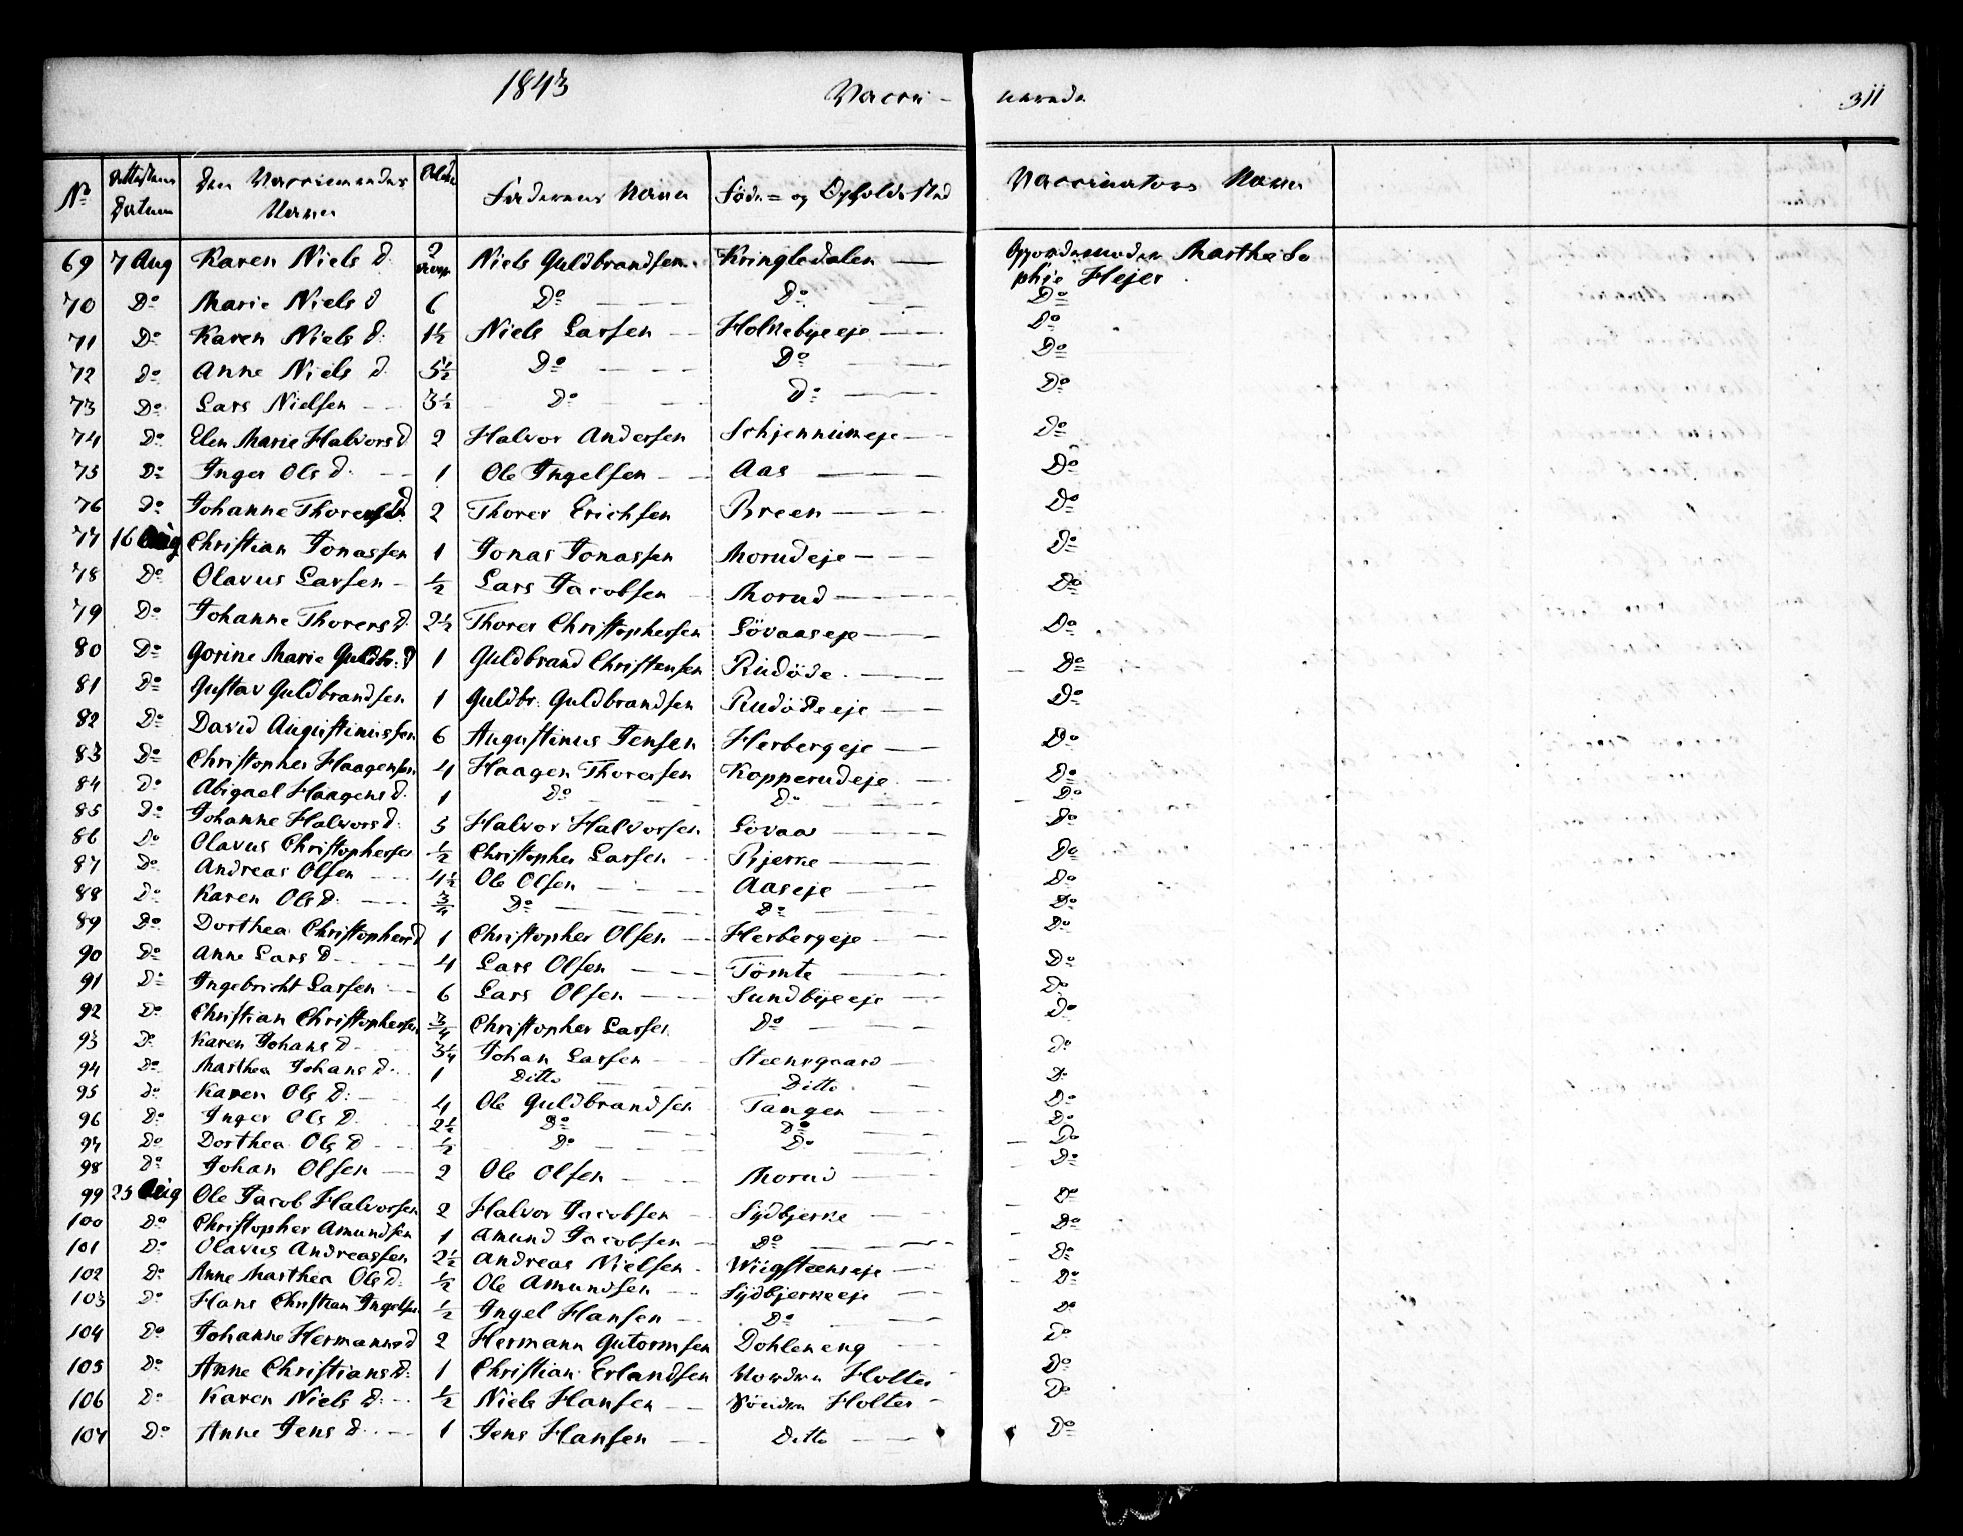 1843 Vacci- nerede 311
No Attestens Datum Den Vaccineredes Navn Alder Faderens Navn Føde= og Opholds Sted Vaccinateurs Navn
69 7 Aug Karen Niels D. 2 Niels Guldbrandsen Kringledalen — Gjordemoder Martha So
phie Hejer
70 Do Marie Niels D 6 Do — Do — Do
71 Do Karen Niels D: 1½ Niels Larsen — Holnebyeeje — Do
72 Do Anne Niels D. 5½ Do — Do — Do
73 Do Lars Nielsen — 3½ Do — Do — Do
74 Do Elen Marie Halvors D 2 Halvor Andersen Schjennumeje — Do
75 Do Inger Ols D. — 1 Ole Ingelsen — Aas — Do
76 Do Johanne Thorers D. 2 Thorer Erichsen Breen — Do
77 16 Aug Christian Jonassen 1 Jonas Jonassen Morudeje — Do
78 Do Olavus Larsen — ½ Lars Jacobsen Morud — Do
79 Do Johanne Thorers D. 2½ Thorer Christophersen Lövaaseje — Do
80 Do Gorine Marie Guldbr: D 1 Guldbrand Christensen Rudöde. — Do
81 Do Gustav Guldbrandsen 1 Guldbr: Guldbrandsen Rudödeeje — Do
82 Do David Augustinussen 6 Augustinus Jensen Herbergeje — Do
83 Do Christopher Haagensen 4 Haagen Thorersen Kopperudeje — Do
84 Do Abigael Haagens D. 1 Do — Do — Do
85 Do Johanne Halvors D. 5 Halvor Halvorsen Lövaas — Do
86 Do Olavus Christophersen ½ Christopher Larsen — Bjerke — Do
87 Do Andreas Olsen — 4½ Ole Olsen — Aaseje — Do
88 Do Karen Ols D. — ¾ Do — Do — Do
89 Do Dorthea Christophers D 1 Christopher Olsen — Herbergeje — Do
90 Do Anne Lars D — 4 Lars Olsen — Tömte — Do
91 Do Ingebricht Larsen — 6 Lars Olsen — Sundbyeeje — Do
92 Do Christian Christophersen ¾ Christopher Larsen Do — Do
93 Do Karen Johans D — 3¼ Johan Larsen — Steensgaard — Do
94 Do Marthea Johans D. 1 Ditto — Ditto — Do
95 Do Karen Ols D. — 4 Ole Guldbrandsen Tangen — Do
96 Do Inger Ols D. 2½ Do — Do — Do
97 Do Dorthea Ols D — ½ Do — Do — Do
98 Do Johan Olsen — 2 Ole Olsen — Morud — Do
99 25 Aug Ole Jacob Halvorsen 2 Halvor Jacobsen — Sydbjerke — Do
100 Do Christopher Amundsen 1 Amund Jacobsen — Do — Do
101 Do Olavus Andreassen 2½ Andreas Nielsen — Wiigsteenseje — Do
102 Do Anne Marthea Ols D. ½ Ole Amundsen — Sydbjerkeeje — Do
103 Do Hans Christian Ingelsen ½ Ingel Hansen — Do — Do
104 Do Johanne Hermanns D 2 Hermann Gutormsen Dohleneng — Do
105 Do Anne Christians D. 1 Christian Erlandsen Nordre Holter — Do
106 Do Karen Niels D: — ½ Niels Hansen — Söndre Holter — Do
107 Do Anne Jens D. — 1 Jens Hansen — Ditto — Do